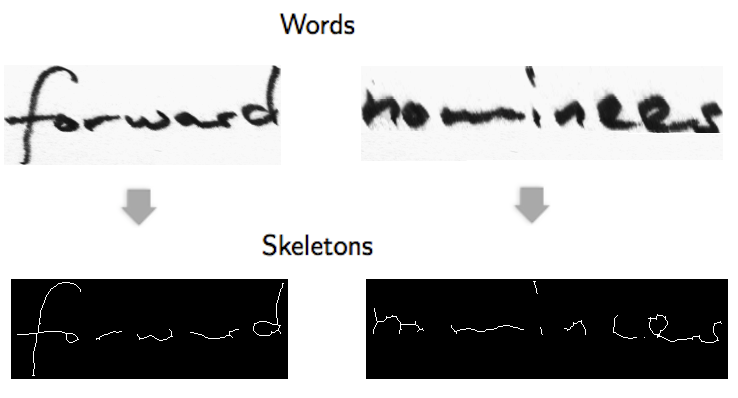 Words
forward nominees
Skeletons
forward nominees